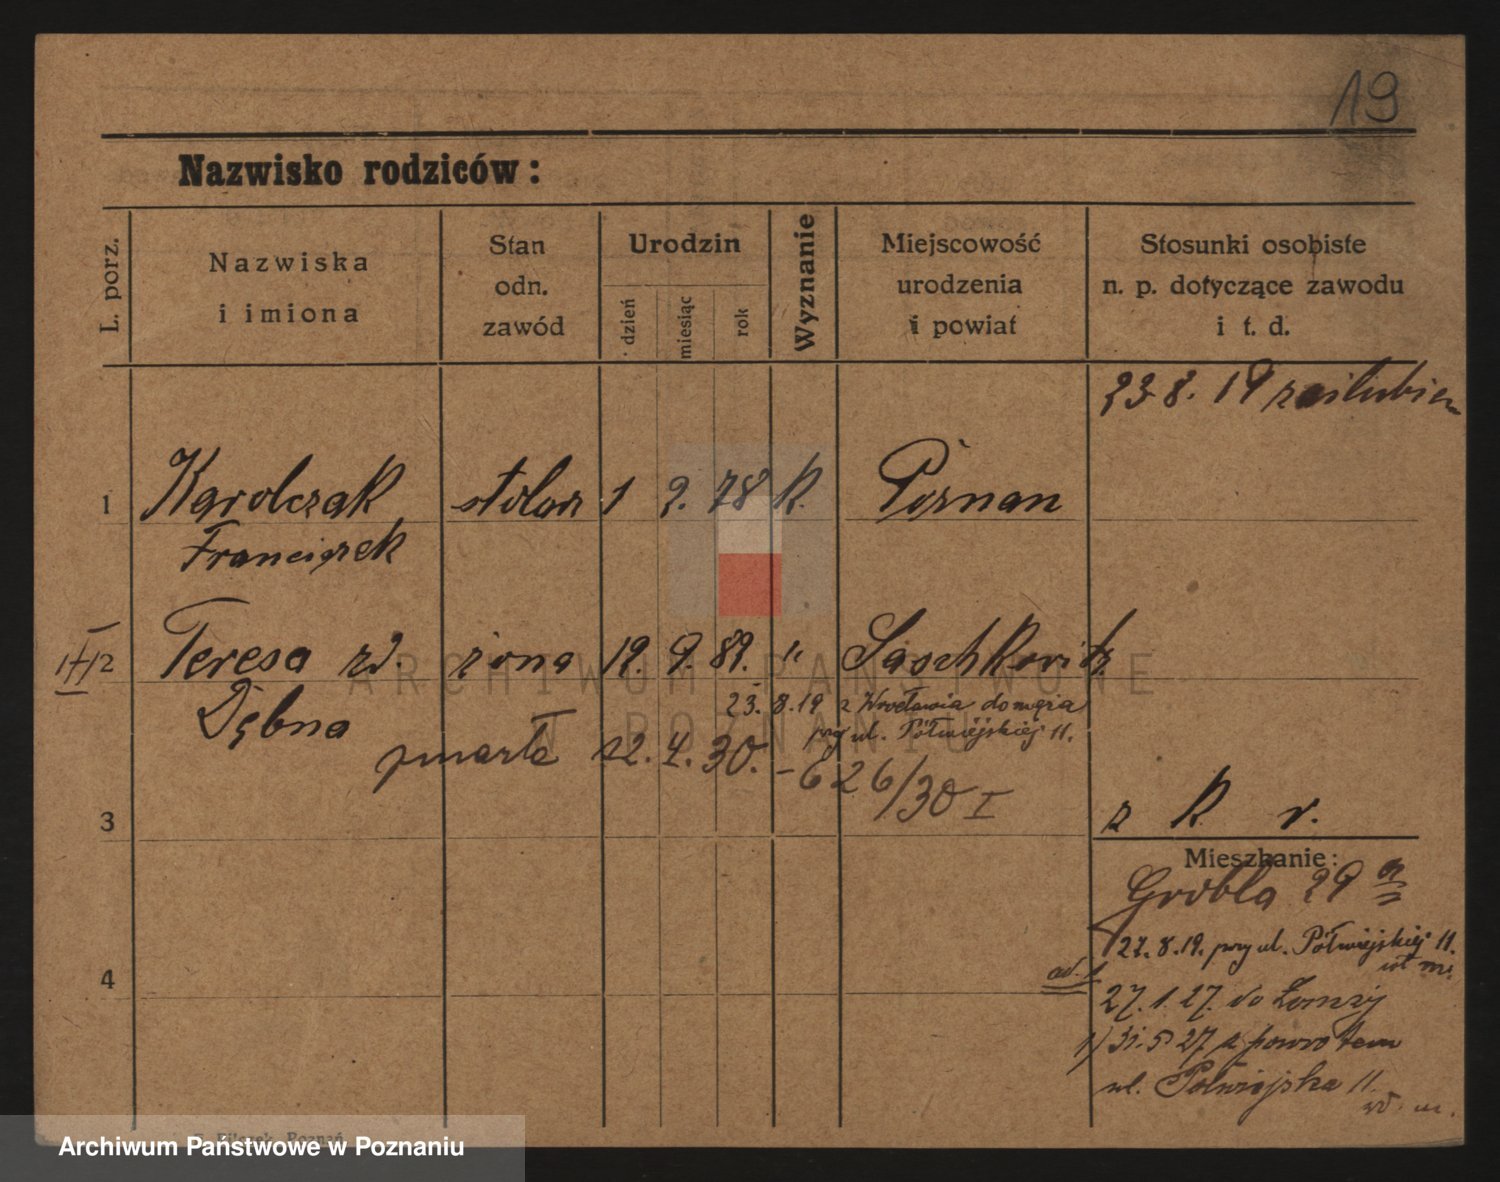 19
Nazwisko rodziców:
L. porz.
Nazwiska
i imiona
Stan
odn.
zawód
Urodzin
dzień
miesiąc
rok
Wyznanie
Miejscowość
urodzenia
i powiat
Stosunki osobiste
n. p. dotyczące zawodu
i t. d.
23.8.19 zaślubien
1 Karolczak stolarz 1 2. 78 K. Poznan
Franciszek
2 Teresa zd. żona 19. 9. 89. " Saschkovitz
Dębna
23.8.19 z Wrocławia do męża
przy ul. Półwiejskiej 11.
zmarła 12.4.30. - 626/30 I
3
z K. r.
Mieszkanie:
Grobla 29 a
27.8.19. przy ul. Półwiejskiej 11.
4
ad. 1
27.1.27. do Łomży
1) 31.5 27 z powrotem
ul. Półwiejska 11.
ARCHIWUM PAŃSTWOWE
W POZNANIU
Archiwum Państwowe w Poznaniu